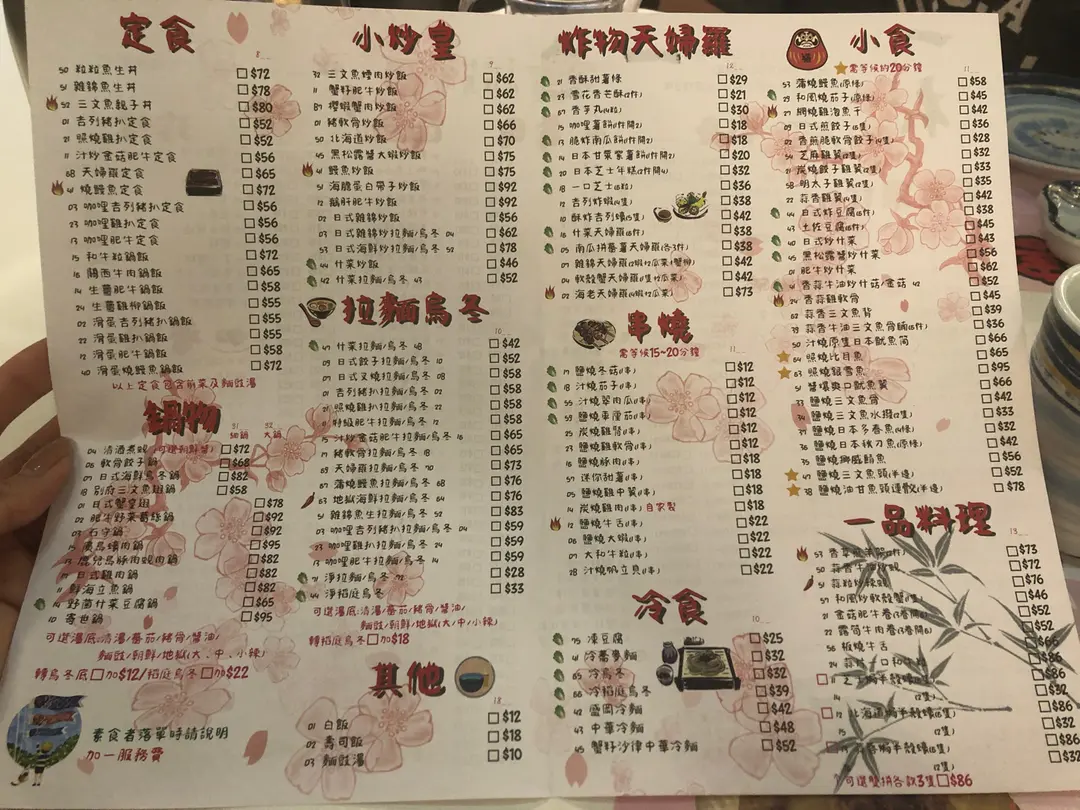 定食
50 粒粒魚生丼 $72
51 雜錦魚生丼 $78
52 三文魚親子丼 $80
01 吉列豬扒定食 $52
21 照燒雞扒定食 $52
11 汁炒金菇肥牛定食 $56
68 天婦羅定食 $65
41 燒鰻魚定食 $72
03 咖哩吉列豬扒定食 $56
23 咖哩雞扒定食 $56
13 咖哩肥牛定食 $72
15 和牛粒鍋飯 $72
16 關西牛肉鍋飯 $65
14 生薑肥牛鍋飯 $58
24 生薑雞柳鍋飯 $55
02 滑蛋吉列豬扒鍋飯 $55
22 滑蛋雞扒鍋飯 $55
12 滑蛋肥牛鍋飯 $58
40 滑蛋燒鰻魚鍋飯 $72
以上定食包含前菜及麵豉湯
鍋物
細鍋 大鍋
04 清酒煮蜆 $72
06 軟骨餃子鍋 $68
07 日式海鮮烏冬鍋 $82
18 別府三文魚翅鍋 $58
01 日式蟹皇翅 $78
02 肥牛野菜葛絲鍋 $92
03 石守鍋 $92
廣島蠔肉鍋 $95
鹿兒島豚肉蜆肉鍋 $82
日式雞肉鍋 $82
11 鮮海立魚鍋 $82
14 野菌什菜豆腐鍋 $65
10 寄世鍋 $95
可選湯底:清湯/番茄/豬骨/醬油/
麵豉/朝鮮/地獄(大、中、小辣)
轉烏冬底 加$12/稻庭烏冬 加$22
素食者落單時請說明
加一服務費
小炒皇
32 三文魚燴肉炒飯 $62
11 蟹籽肥牛炒飯 $62
89 櫻蝦蟹肉炒飯 $62
01 豬軟骨炒飯 $66
50 北海道炒飯 $70
45 黑松露醬大蝦炒飯 $75
41 鰻魚炒飯 $75
51 海膽蛋白帶子炒飯 $92
12 鵝肝肥牛炒飯 $92
02 日式雜錦炒飯 $56
03 日式雜錦炒拉麵/烏冬 04 $62
53 日式海鮮炒拉麵/烏冬 52 $78
44 什菜炒飯 $46
42 什菜炒拉麵/烏冬 43 $52
拉麵烏冬
47 什菜拉麵/烏冬 48 $42
09 日式餃子拉麵/烏冬 10 $52
07 日式叉燒拉麵/烏冬 08 $58
01 吉列豬扒拉麵/烏冬 $58
21 照燒雞扒拉麵/烏冬 22 $58
11 特級肥牛拉麵/烏冬 12 $58
15 汁炒金菇肥牛拉麵/烏冬 16 $65
17 豬軟骨拉麵/烏冬 18 $65
69 天婦羅拉麵/烏冬 70 $73
67 蒲燒鰻魚拉麵/烏冬 68 $76
63 地獄海鮮拉麵/烏冬 64 $76
51 雜錦魚生拉麵/烏冬 52 $83
03 咖哩吉列豬扒拉麵/烏冬 04 $59
23 咖哩雞扒拉麵/烏冬 24 $59
13 咖哩肥牛拉麵/烏冬 14 $59
淨拉麵/烏冬 72 $28
44 淨稻庭烏冬 $33
可選湯底:清湯/番茄/豬骨/醬油/
麵豉/朝鮮/地獄(大/中/小辣)
轉稻庭烏冬 加$18
其他
01 白飯 $12
02 壽司飯 $18
03 麵豉湯 $10
炸物天婦羅
21 香酥甜薯條 $29
23 雪花香芒酥(2件) $21
67 香芋丸(4粒) $30
15 咖哩薯餅(1件開2) $18
13 脆炸南瓜餅(1件開2) $18
14 日本甘栗家薯餅(1件開2) $20
20 日本芝士年糕(2件開4) $32
18 一口芝士(8粒) $36
12 吉列炸蝦(4隻) $38
10 酥炸吉列蠔(5隻) $42
16 什菜天婦羅(5件) $38
05 南瓜拼番薯天婦羅(各3件) $38
07 雜錦天婦羅(2蝦1瓜菜1蟹柳) $42
04 軟殼蟹天婦羅(1隻1瓜菜) $42
02 海老天婦羅(4蝦1瓜菜) $73
串燒
需等候15~20分鐘
17 鹽燒冬菇(1串) $12
18 汁燒茄子(1串) $12
55 汁燒翠肉瓜(1串) $12
59 鹽燒車厘茄(1串) $12
25 炭燒雞腎(1串) $12
23 鹽燒雞軟骨(1串) $18
16 鹽燒豚肉(1串) $18
57 迷你甜薯(1串) $18
05 鹽燒雞中翼(1串) $18
14 炭燒雞肉(1串)自家製 $18
12 鹽燒牛舌(1串) $22
06 鹽燒大蝦(1串) $22
07 大和牛粒(1串) $22
28 汁燒帆立貝(1串) $22
冷食
75 凍豆腐 $25
41 冷蕎麥麵 $32
65 冷烏冬 $32
66 冷稻庭烏冬 $39
42 盛岡冷麵 $42
43 中華冷麵 $48
45 蟹籽沙律中華冷麵 $52
小食
需等候約20分鐘
53 蒲燒鰻魚(原條) $58
25 和風燒茄子(原條) $45
27 網燒雞泡魚干 $42
09 日式煎餃子(6隻) $36
02 香煎脆軟骨餃子(4隻) $28
54 芝麻雞翼(2隻) $32
21 炭燒餃子雞翼(2隻) $33
58 明太子雞翼(2隻) $35
22 蒜香雞翼(4隻) $42
44 日式炸豆腐(6件) $38
43 土佐豆腐(6件) $45
40 日式炒什菜 $43
45 黑松露醬炒什菜 $56
01 肥牛炒什菜 $56
41 香蒜牛油炒什菇/金菇 42 $52
24 香蒜雞軟骨 $45
62 蒜香三文魚背 $39
39 蒜香牛油三文魚骨腩(6件) $36
50 汁燒原隻日本魷魚筒 $66
64 照燒比目魚 $65
63 照燒銀雪魚 $95
51 醬爆爽口魷魚翼 $66
33 鹽燒三文魚骨 $42
34 鹽燒三文魚水撥(2隻) $33
37 鹽燒日本多春魚(4條) $32
36 鹽燒日本秋刀魚(原條) $42
35 鹽燒挪威鯖魚 $56
47 鹽燒三文魚頭(半邊) $52
38 鹽燒油甘魚頭連鮫(半邊) $78
一品料理
53 $73
50 $72
51 $76
57 和風炒軟殼蟹(1隻) $46
21 金菇肥牛卷(3卷開6) $52
22 露筍牛肉卷(3卷開6) $52
56 板燒牛舌 $66
24 $86
11 $86
14 (2隻) $32
12 $86
(2隻) $32
$86
(2隻) $32
可選雙拼各款3隻 $86